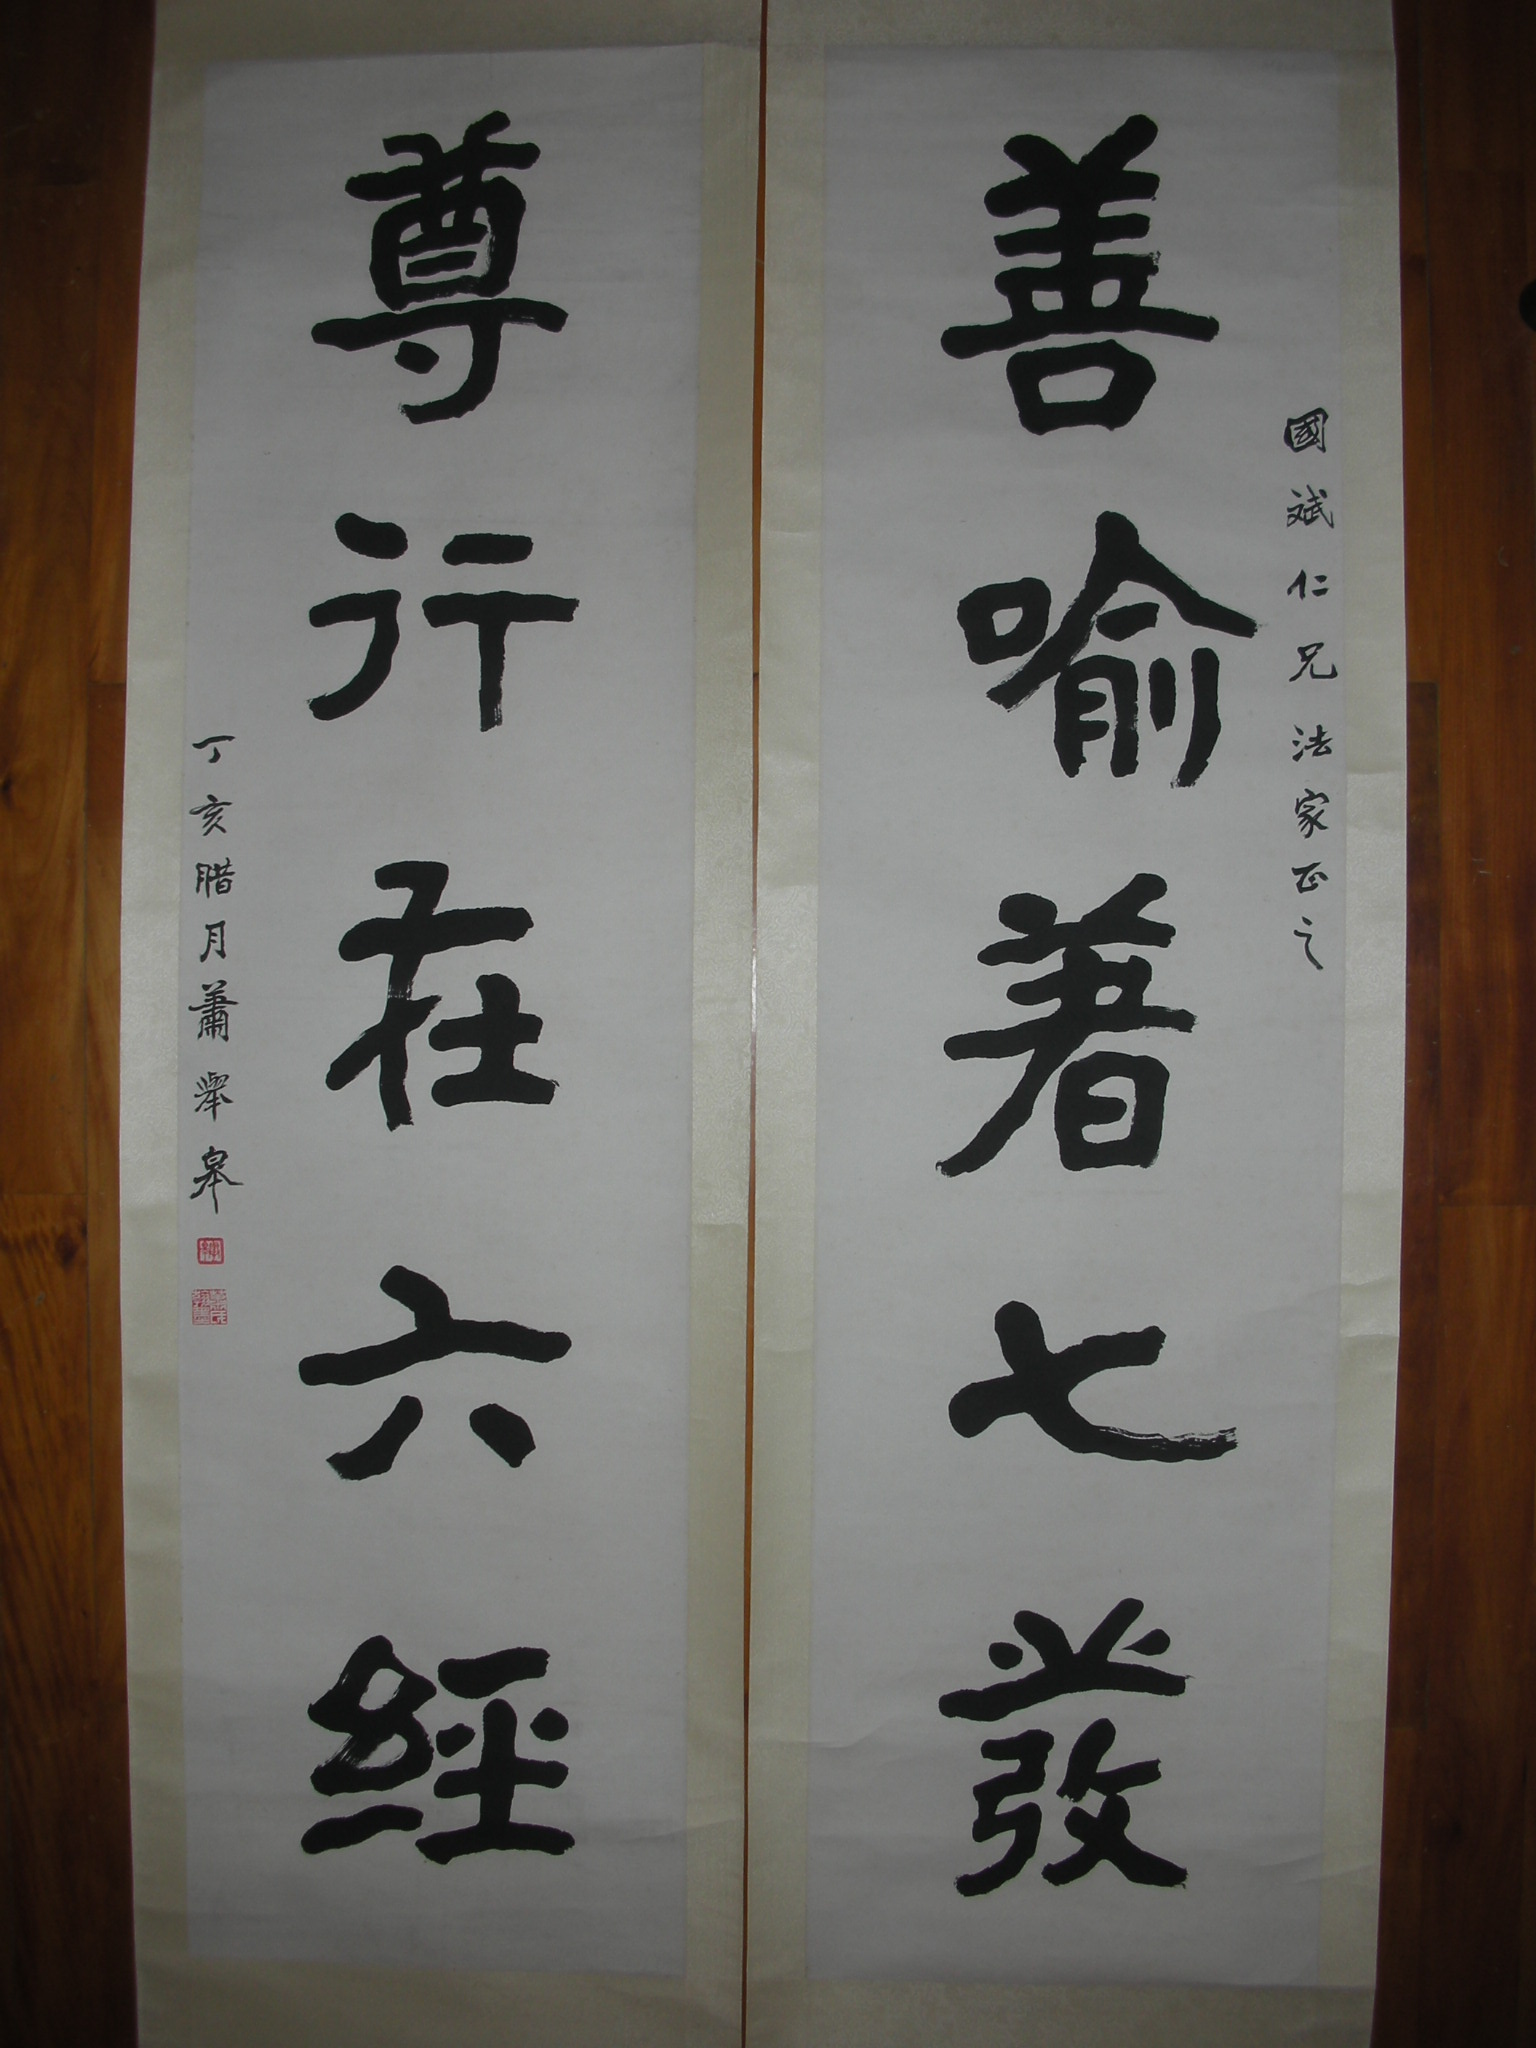 國斌仁兄法家正之
善喻著七發
尊行在六經
丁亥腊月蕭犖皋